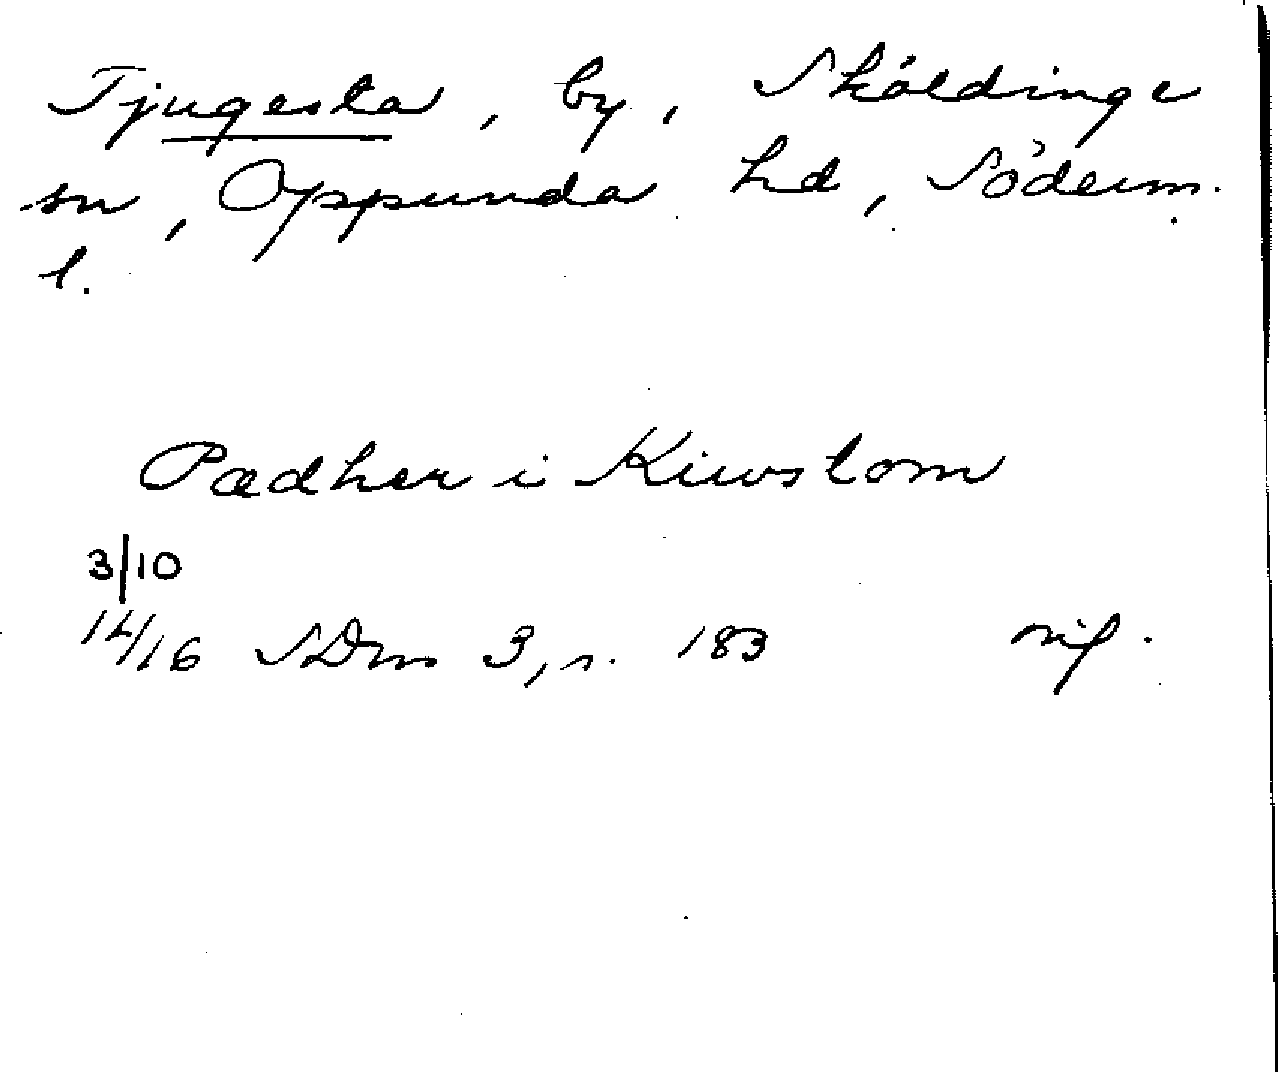 Tjugesta, by, Sköldinge
sn, Oppunda hd, Söderm.
l.
Pædher i Kiwstom
3/10
14/16 SDns 3, s. 183